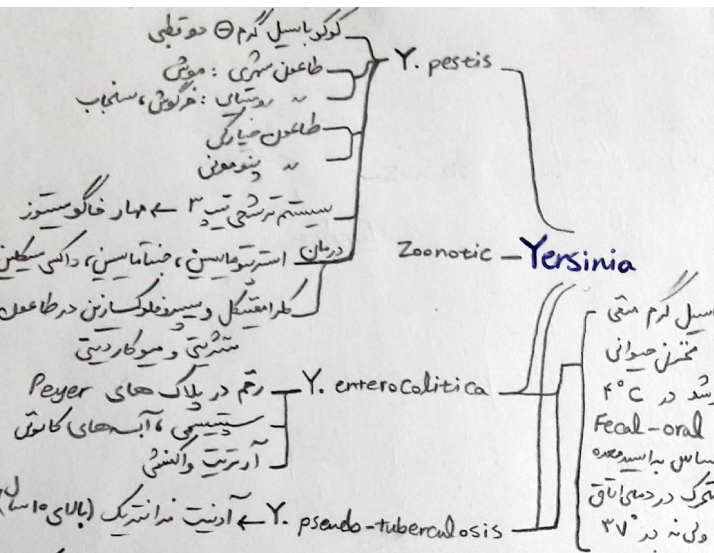 کوکوباسیل گرم ⊖ دو قطبی
Y. pestis
طاعون شهری : موش
〃 روستایی : خرگوش، سنجاب
طاعون خیارکی
〃 پنومونی
سیستم ترشحی تیپ ۳ ← مهار فاگوسیتوز
درمان استرپتومایسین، جنتامایسین، داکسی سیکلین
کلرامفنیکل و سیپروفلوکساسین در طاعون
مننژیتی و میوکاردیتی
Zoonotic – Yersinia
Y. enterocolitica
رقم در پلاک های Peyer
سپتیسمی، آبسه‌های کانونی
آرتریت واکنشی
Y. pseudo-tuberculosis ← آدنیت مزانتریک (بالای ۱۰ سال)
باسیل گرم منفی
مخزن حیوانی
رشد در ۴°C
Fecal-oral
حساس به اسید معده
متحرک در دمای اتاق
ولی نه در ۳۷°